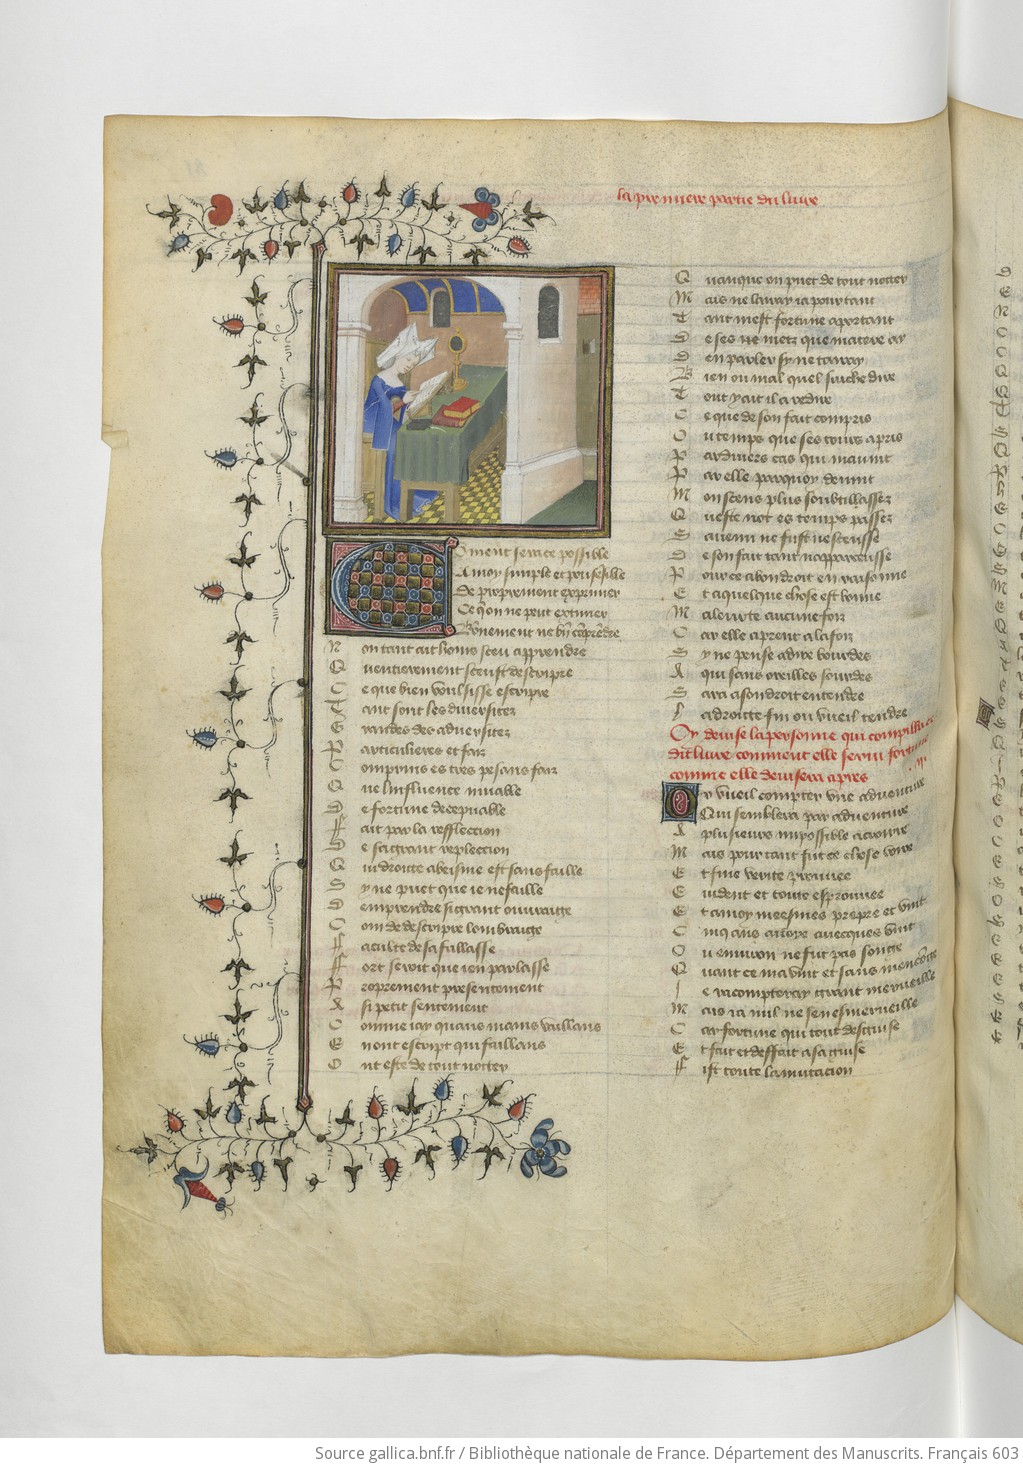 la premiere partie du livre
Coment seroit ce possible
A moy simple et pou sesible
De proprement exprimer
Ce q̃ on ne peut extimer
Bõnement ne biẽ cõprẽdre
Non tant ait homs sceu apprendre
Quentierement sceust descripre
Ce que bien voulsisse escripre
Tant sont les diversitez
Grandes des adversitez
Particulieres et faiz
Comprins es tres pesans faiz
Que linfluence muable
De fortune decepuable
Fait par la reffleccion
De sa grant repleccion
Qui droitte abeisme est sans faille
Sy ne puet que ie ne faille
Demprendre si grant ouuraige
Com de descripre lombraige
Faculte de sa fallasse
Fort seroit que ien parlasse
Proprement presentement
A si petit sentement
Comme iay quans mains vaillans
En ont escript qui faillans
Ont este de tout notter
Quanque on puet de tout notter
Mais ne lairay ia pour tant
Tant mest fortune aportant
De ses ne metz que matere ay
Den parler sy ne tairay
Bien ou mal quel suiche dire
Tout y ait il a redire
Ce que de son fait compris
Ou temps que ses tours apris
Par divers cas qui mauint
Par elle par quoy deuint
Mon scens plus soubtil assez
Queste not es temps passez
Sauenu ne fust ne sceusse
De son fait tant napparceusse
Pour ce a bon droit en raisonne
Et a quelque chose est bonne
Maleurte aucune foiz
Car elle aprent a la foiz
Sy ne pense a dire bourdes
A qui sans oreilles sourdes
Sara a son droit entendre
La droitte fin ou vueil tendre
Cy devise la personne qui compilla ce
dit livre comment elle servi fortune
comme elle devisera apres
Or vueil compter vne aduenture
Qui semblera par aduenture
A plusieurs impossible a croire
Mais pour tant fut ce chose voire
Et fine verite prouuee
Euident et toute esprouuee
Et a moy meesmes propre et vint
Cinq ans auoye auecques vint
Ou enuiron ne fut pas songe
Quant ce mauint et sans mensonge
Ie racompteray grant merueille
Mais ia nul ne sen esmerueille
Car fortune qui tout desguise
Et fait et deffait a sa guise
Fist toute la mutacion
Source gallica.bnf.fr / Bibliothèque nationale de France. Département des Manuscrits. Français 603